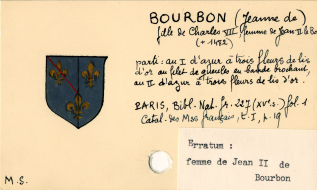 BOURBON (Jeanne de)
fille de Charles VII femme de Jean II le Bo
(+ 1482)
parti : au I d'azur à trois fleurs de lis
d'or au filet de gueules en bande brochant,
au II d'azur à trois fleurs de lis d'or.
PARIS, Bibl. Nat. fr. 227 (XVe s.) fol. 1
Catal. des Mss français, t. I, p. 19
Erratum :
femme de Jean II de
Bourbon
M.S.